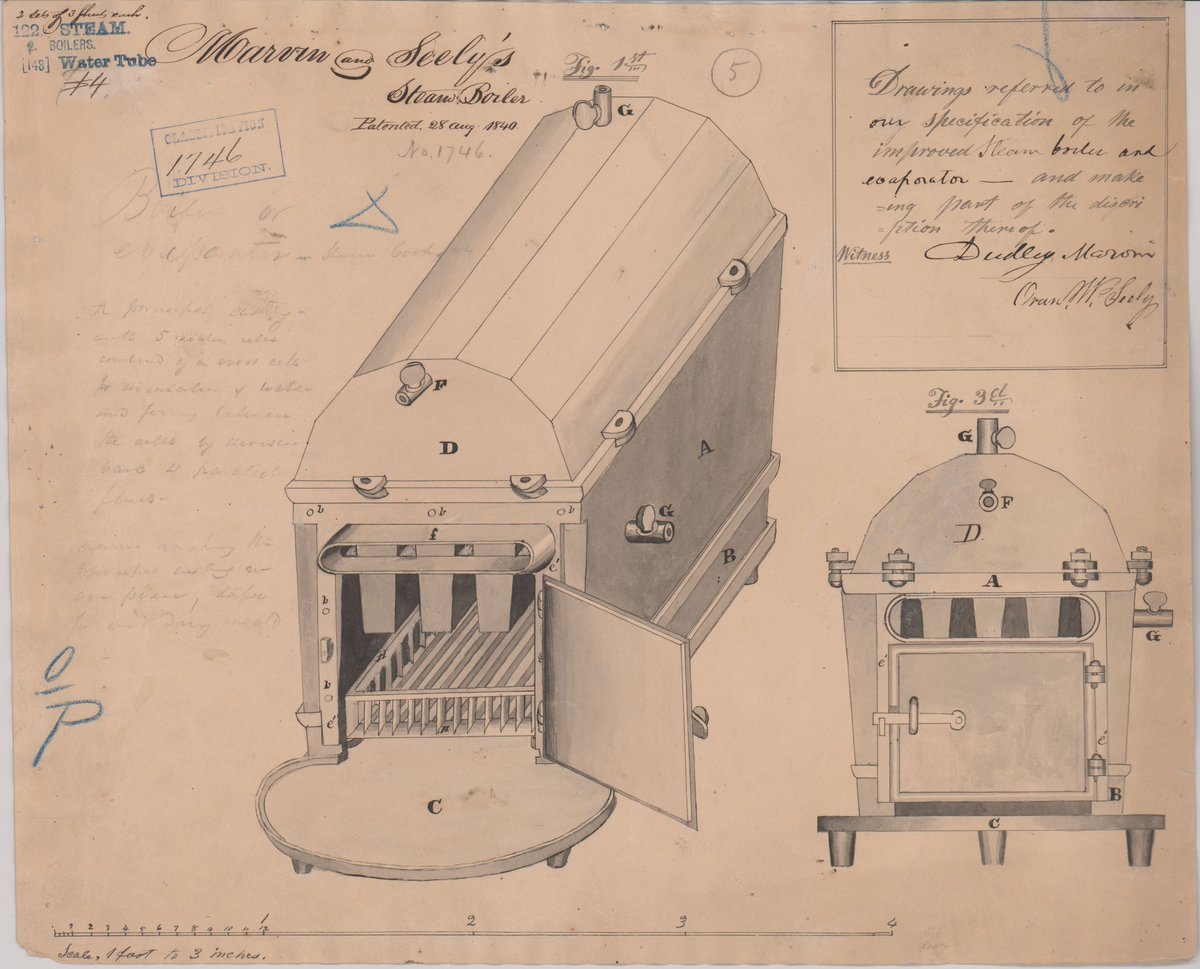 2 sets of 3 sheets each.
122. STEAM.
2. BOILERS.
[148] Water Tube
#4
Marvin and Seely's
Steam Boiler
Patented. 28 aug. 1840
No. 1746.
Fig. 1st
5
CLASSIFICATION
1746
DIVISION.
Drawings referred to in
our specification of the
improved steam boiler and
evaporator — and make
=ing part of the discri
=ption thereof.
Witness
Dudley Marvin
Oran W. Seely
Boiler or
Steam
the principal casting
with 5 water cells
combined by a cross cell
for circulation of water
and forming between
the cells by division
bars 4 parallel
flues-
making the
principal casting
G
F
D
A
b b b
G
f
B
e'
b
b
e'
H
H
C
Fig. 3d
G
F
D
A
G
e'
e'
B
C
1 2 3 4 5 6 7 8 9 10 11 12
1 2 3 4
Scale, 1 foot to 3 inches.